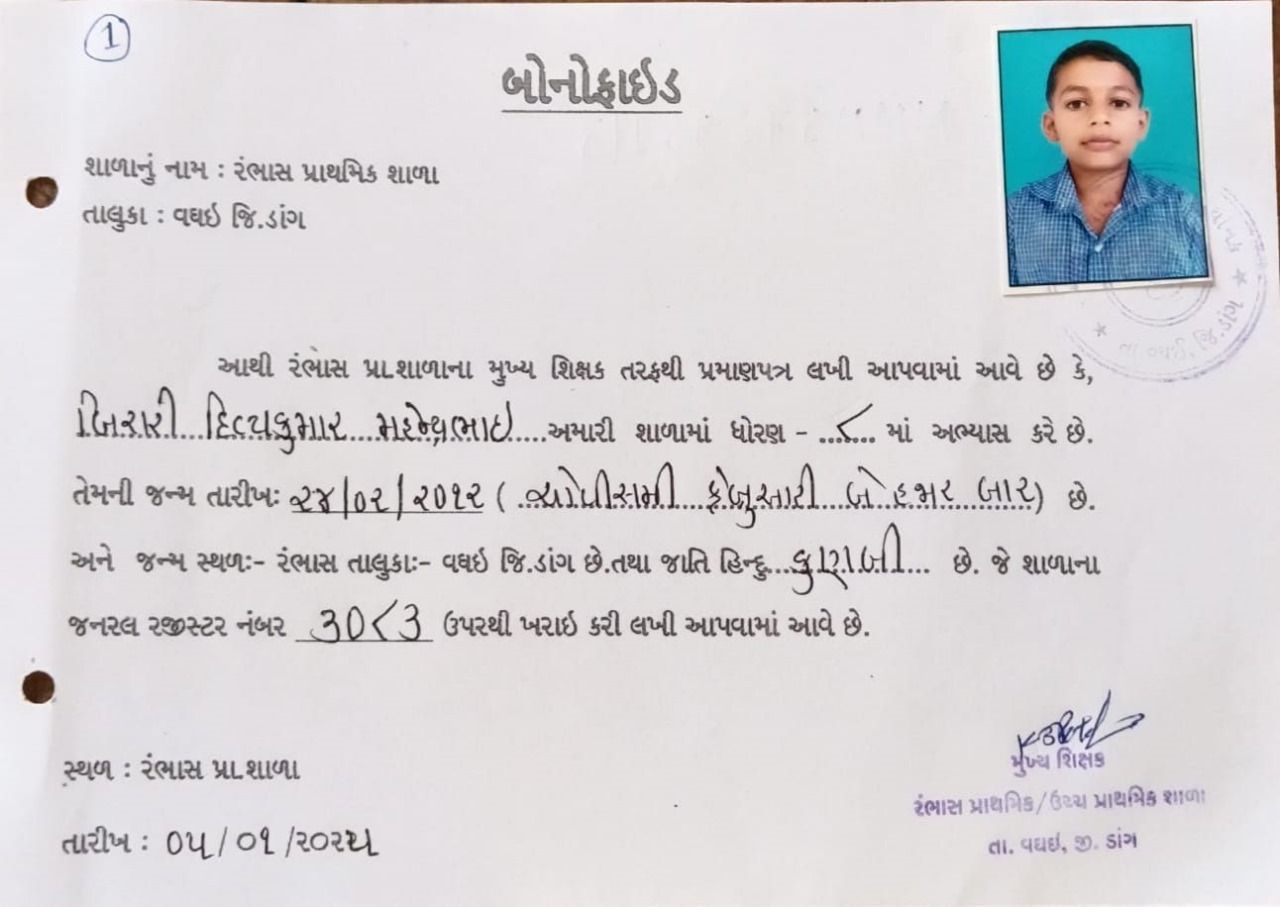 1
બોનોફાઇડ
શાળાનું નામ : રંભાસ પ્રાથમિક શાળા
તાલુકા : વઘઇ જિ.ડાંગ
આથી રંભાસ પ્રા.શાળાના મુખ્ય શિક્ષક તરફથી પ્રમાણપત્ર લખી આપવામાં આવે છે કે,
બિરારી દિવ્યકુમાર મહેન્દ્રભાઇ અમારી શાળામાં ધોરણ - ૮ માં અભ્યાસ કરે છે.
તેમની જન્મ તારીખઃ ૨૪/૦૨/૨૦૧૨ ( ચોવીસમી ફેબ્રુઆરી બે હજાર બાર) છે.
અને જન્મ સ્થળઃ- રંભાસ તાલુકાઃ- વઘઇ જિ.ડાંગ છે.તથા જાતિ હિન્દુ કુણબી છે. જે શાળાના
જનરલ રજીસ્ટર નંબર ૩૦૮૩ ઉપરથી ખરાઇ કરી લખી આપવામાં આવે છે.
સ્થળ : રંભાસ પ્રા.શાળા
તારીખ : ૦૫/૦૧/૨૦૨૫
મુખ્ય શિક્ષક
રંભાસ પ્રાથમિક/ઉચ્ચ પ્રાથમિક શાળા
તા. વઘઇ, જી. ડાંગ
તા.વઘઈ, જિ.ડાંગ